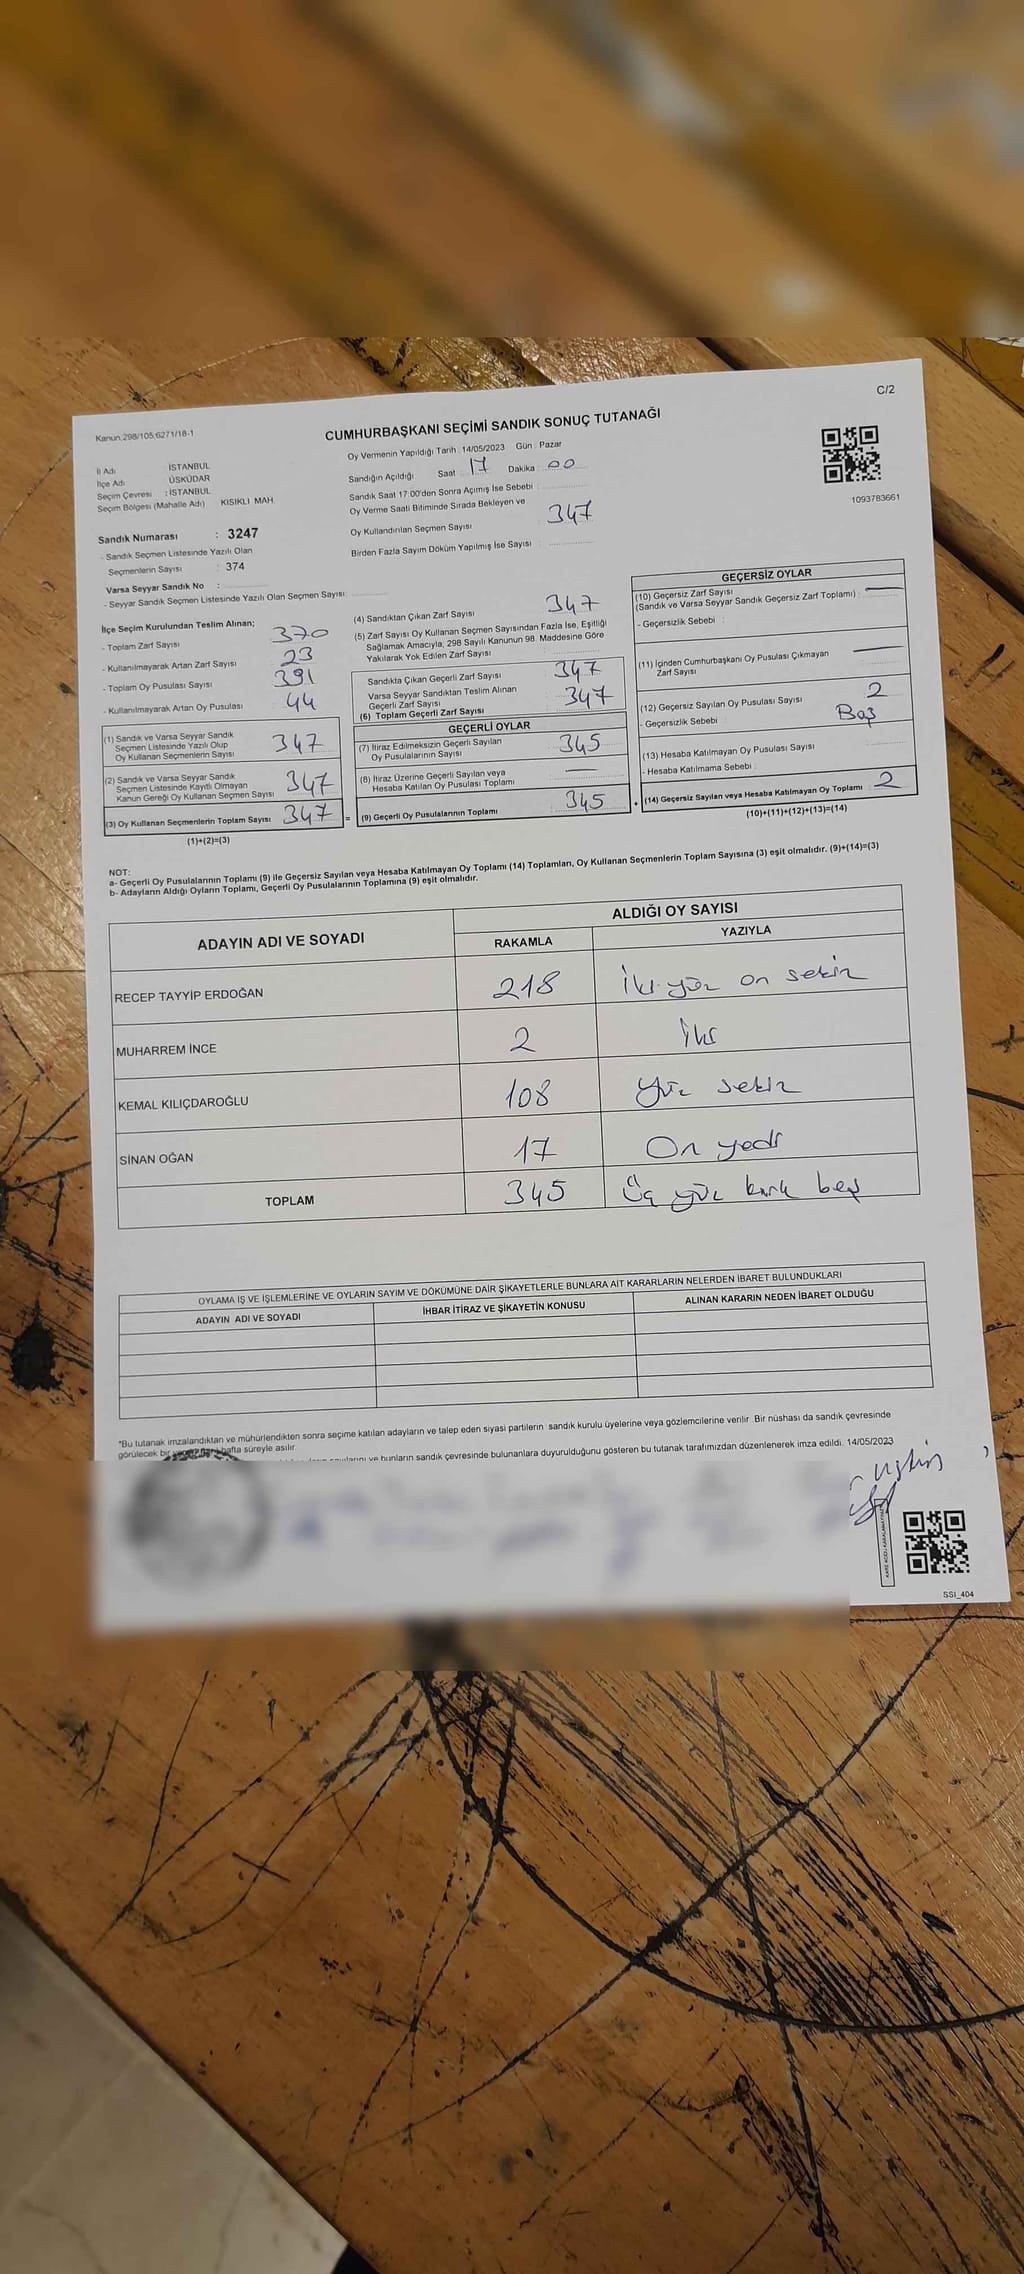 C/2
Kanun:298/105;6271/18-1
CUMHURBAŞKANI SEÇİMİ SANDIK SONUÇ TUTANAĞI
İl Adı İSTANBUL
İlçe Adı ÜSKÜDAR
Seçim Çevresi : İSTANBUL
Seçim Bölgesi (Mahalle Adı) KISIKLI MAH.
Sandık Numarası : 3247
- Sandık Seçmen Listesinde Yazılı Olan
Seçmenlerin Sayısı : 374
Varsa Seyyar Sandık No :
- Seyyar Sandık Seçmen Listesinde Yazılı Olan Seçmen Sayısı:
Oy Vermenin Yapıldığı Tarih : 14/05/2023 Gün : Pazar
Sandığın Açıldığı Saat 17 Dakika 00
Sandık Saat 17:00'den Sonra Açımış İse Sebebi :
Oy Verme Saati Bitiminde Sırada Bekleyen ve
Oy Kullandırılan Seçmen Sayısı 347
Birden Fazla Sayım Döküm Yapılmış İse Sayısı :
1093783661
İlçe Seçim Kurulundan Teslim Alınan;
- Toplam Zarf Sayısı 370
- Kullanılmayarak Artan Zarf Sayısı 23
- Toplam Oy Pusulası Sayısı 391
- Kullanılmayarak Artan Oy Pusulası 44
(1) Sandık ve Varsa Seyyar Sandık
Seçmen Listesinde Yazılı Olup
Oy Kullanan Seçmenlerin Sayısı 347
(2) Sandık ve Varsa Seyyar Sandık
Seçmen Listesinde Kayıtlı Olmayan
Kanun Gereği Oy Kullanan Seçmen Sayısı 347
(3) Oy Kullanan Seçmenlerin Toplam Sayısı 347 =
(1)+(2)=(3)
(4) Sandıktan Çıkan Zarf Sayısı 347
(5) Zarf Sayısı Oy Kullanan Seçmen Sayısından Fazla İse, Eşitliği
Sağlamak Amacıyla, 298 Sayılı Kanunun 98. Maddesine Göre
Yakılarak Yok Edilen Zarf Sayısı
Sandıkta Çıkan Geçerli Zarf Sayısı 347
Varsa Seyyar Sandıktan Teslim Alınan
Geçerli Zarf Sayısı 347
(6) Toplam Geçerli Zarf Sayısı
GEÇERLİ OYLAR
(7) İtiraz Edilmeksizin Geçerli Sayılan
Oy Pusulalarının Sayısı 345
(8) İtiraz Üzerine Geçerli Sayılan veya
Hesaba Katılan Oy Pusulası Toplamı —
(9) Geçerli Oy Pusulalarının Toplamı 345 +
GEÇERSİZ OYLAR
(10) Geçersiz Zarf Sayısı —
(Sandık ve Varsa Seyyar Sandık Geçersiz Zarf Toplamı) :
- Geçersizlik Sebebi :
(11) İçinden Cumhurbaşkanı Oy Pusulası Çıkmayan —
Zarf Sayısı
(12) Geçersiz Sayılan Oy Pusulası Sayısı 2
- Geçersizlik Sebebi : Boş
(13) Hesaba Katılmayan Oy Pusulası Sayısı
- Hesaba Katılmama Sebebi :
(14) Geçersiz Sayılan veya Hesaba Katılmayan Oy Toplamı : 2
(10)+(11)+(12)+(13)=(14)
NOT:
a- Geçerli Oy Pusulalarının Toplamı (9) ile Geçersiz Sayılan veya Hesaba Katılmayan Oy Toplamı (14) Toplamları, Oy Kullanan Seçmenlerin Toplam Sayısına (3) eşit olmalıdır. (9)+(14)=(3)
b- Adayların Aldığı Oyların Toplamı, Geçerli Oy Pusulalarının Toplamına (9) eşit olmalıdır.
ADAYIN ADI VE SOYADI ALDIĞI OY SAYISI
RAKAMLA YAZIYLA
RECEP TAYYİP ERDOĞAN 218 İki yüz on sekiz
MUHARREM İNCE 2 İki
KEMAL KILIÇDAROĞLU 108 Yüz sekiz
SİNAN OĞAN 17 On yedi
TOPLAM 345 Üç yüz kırk beş
OYLAMA İŞ VE İŞLEMLERİNE VE OYLARIN SAYIM VE DÖKÜMÜNE DAİR ŞİKAYETLERLE BUNLARA AİT KARARLARIN NELERDEN İBARET BULUNDUKLARI
ADAYIN ADI VE SOYADI İHBAR İTİRAZ VE ŞİKAYETİN KONUSU ALINAN KARARIN NEDEN İBARET OLDUĞU
*Bu tutanak imzalandıktan ve mühürlendikten sonra seçime katılan adayların ve talep eden siyasi partilerin sandık kurulu üyelerine veya gözlemcilerine verilir. Bir nüshası da sandık çevresinde
görülecek bir hafta süreyle asılır.
ve bunların sandık çevresinde bulunanlara duyurulduğunu gösteren bu tutanak tarafımızdan düzenlenerek imza edildi. 14/05/2023
SSI_404